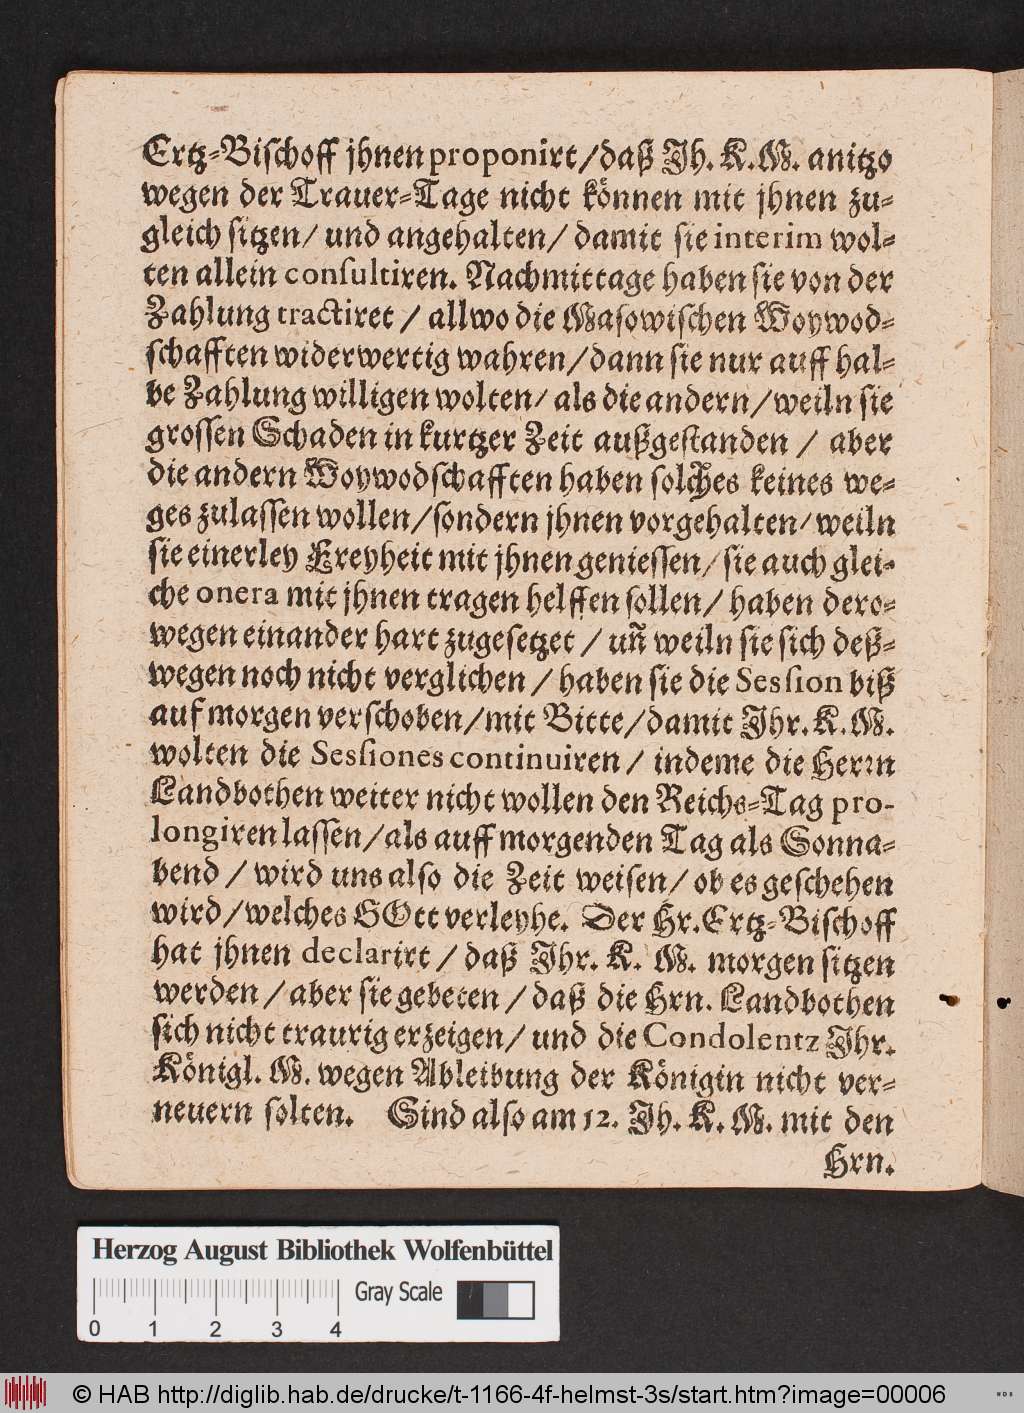 Ertz-Bischoff jhnen proponirt/daß Jh. K. M. anitzo
wegen der Trauer-Tage nicht können mit jhnen zu-
gleich sitzen/ und angehalten/ damit sie interim wol-
ten allein conſultiren. Nachmittage haben sie von der
Zahlung tractiret / allwo die Masowischen Woywod-
schafften widerwertig wahren/dann sie nur auff hal-
be Zahlung willigen wolten/ als die andern/weiln sie
grossen Schaden in kurtzer Zeit außgestanden / aber
die andern Woywodschafften haben solches keines we-
ges zulassen wollen/sondern jhnen vorgehalten/weiln
sie einerley Freyheit mit jhnen geniessen/ sie auch glei-
che onera mit jhnen tragen helffen sollen/ haben dero-
wegen einander hart zugesetzet / uñ weiln sie sich deß-
wegen noch nicht verglichen / haben sie die Sesſion biß
auf morgen verschoben/mit Bitte/damit Jhr. K. M.
wolten die Sesſiones continuiren / indeme die Herꝛn
Landbothen weiter nicht wollen den Reichs-Tag pro-
longiren lassen/als auff morgenden Tag als Sonna-
bend / wird uns also die Zeit weisen/ ob es geschehen
wird/welches GOtt verleyhe. Der Hr. Ertz-Bischoff
hat jhnen declarirt / daß Jhr. K. M. morgen sitzen
werden / aber sie gebeten / daß die Hrn. Landbothen
sich nicht traurig erzeigen/ und die Condolentz Jhr.
Königl. M. wegen Ableibung der Königin nicht ver-
neuern solten. Sind also am 12. Jh. K. M. mit den
Hrn.
Herzog August Bibliothek Wolfenbüttel
Gray Scale
0 1 2 3 4
© HAB http://diglib.hab.de/drucke/t-1166-4f-helmst-3s/start.htm?image=00006
WDB